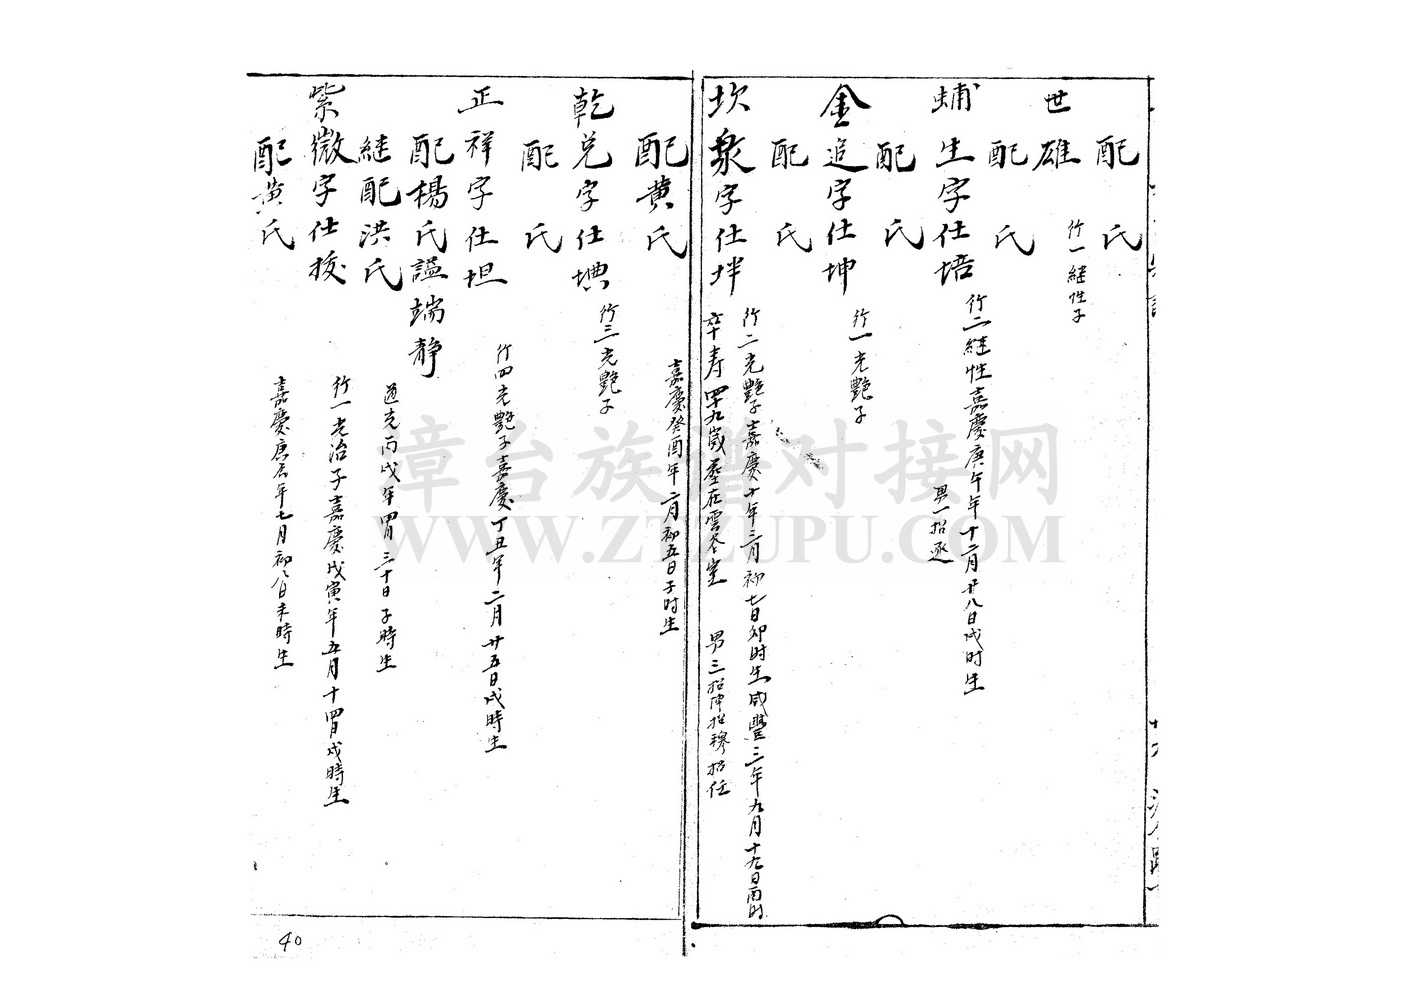 配 氏
世雄 行一継性子
配 氏
蛹生字仕培 行二継性嘉慶庚午年十二月廿八日戍时生
男一招承
配 氏
金追字仕坤 行一光艶子
配 氏
坎衆字仕垟 行二光艷子嘉慶十年三月初七日卯时生咸豐三年九月十九日酉时
卒寿四十九歲墓在雲 男三招 招穆招任
配黄氏 嘉慶癸酉年二月初五日子时生
乾兑字仕㙉 行三光艷子
配 氏
正祥字仕坦 行四光艷子嘉慶丁丑年二月廿五日戍時生
配楊氏謚端静
継配洪氏 道光丙戍年四月三十日子時生
紫微字仕 行一光治子嘉慶戊寅年五月十四日戍時生
配黄氏 嘉慶庚辰年七月初八日未時生
40
漳台族谱对接网
WWW.ZTZUPU.COM